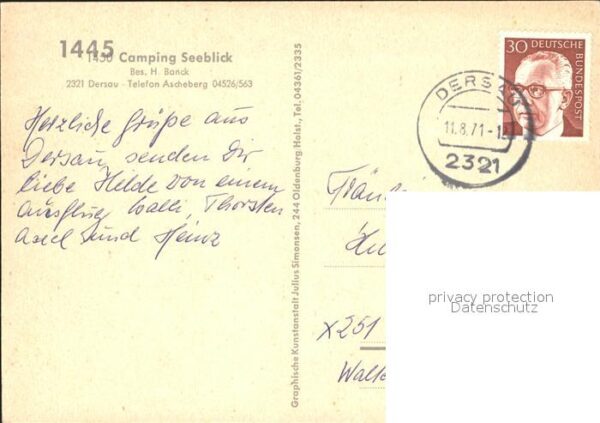 1445
1450 Camping Seeblick
Bes. H. Banck
2321 Dersau - Telefon Ascheberg 04526/563
Herzliche Grüße aus
Dersau, senden Dir
liebe Hilde von einem
Ausflug Walli, Thorsten
Axel und Heinz
Graphische Kunstanstalt Julius Simonsen, 244 Oldenburg Holst., Tel. 04361/2335
30 DEUTSCHE BUNDESPOST
DERSAU
11.8.71-1
2321
Fräulein
X251
privacy protection
Datenschutz